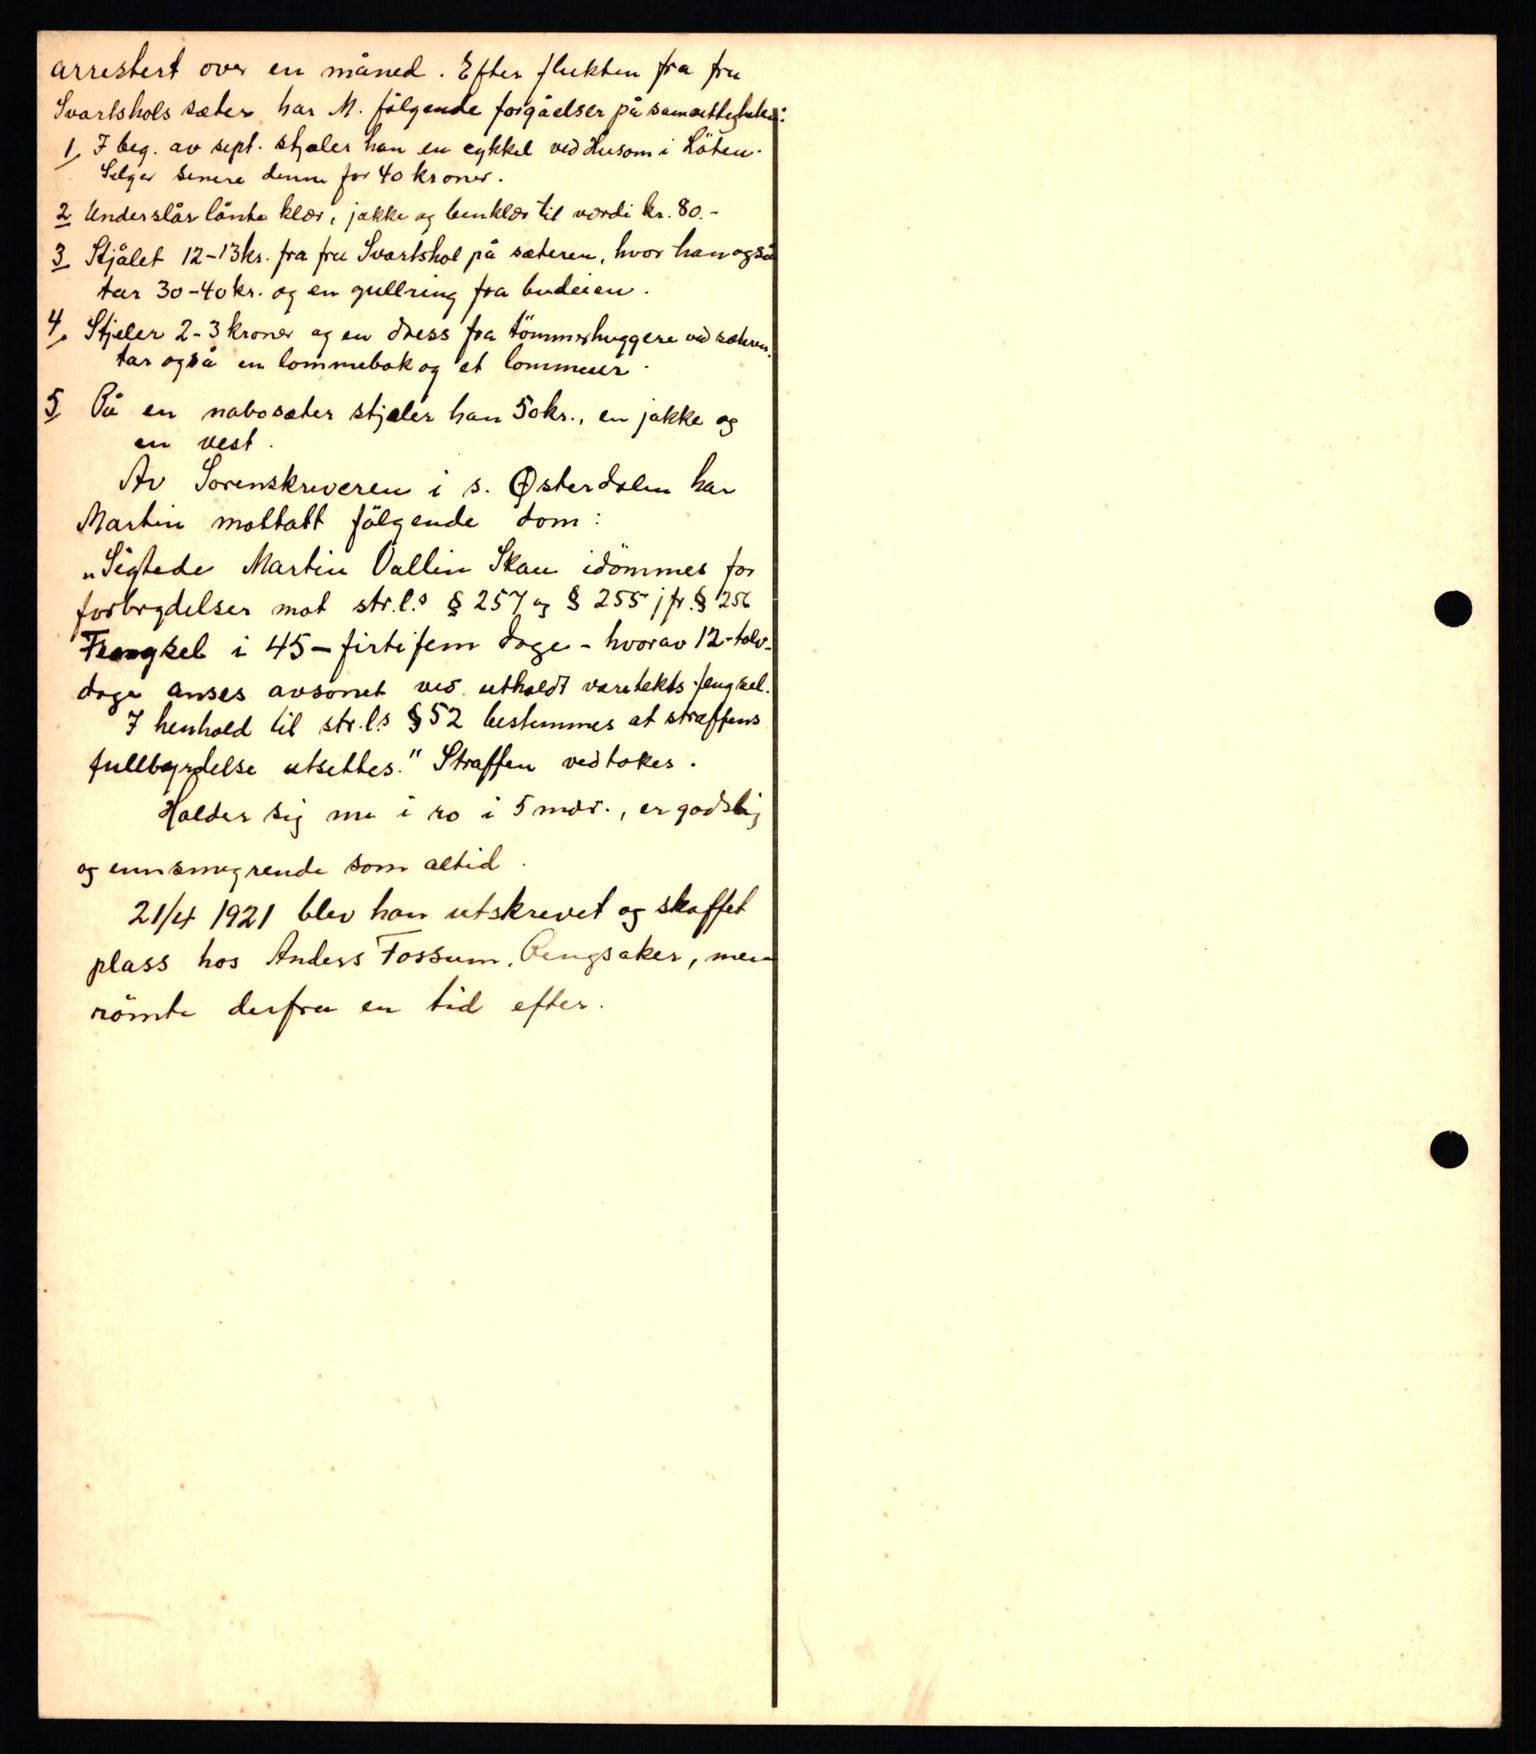 arrestert over en måned. Efter flukten fra fru
Svartshols sæter har M. følgende forgåelser på samvittigheten:
1, I beg. av sept. stjæler han en cykkel ved Husom i Löten.
Selger senere denne for 40 kroner.
2 Underslår lånte klær, jakke og benklær til værdi kr. 80.-
3 Stjålet 12-13kr. fra fru Svartshol på sæteren, hvor han også
tar 30-40kr. og en gullring fra budeien.
4, Stjeler 2-3 kroner og en dress fra tömmerhuggere ved sæteren.
tar også en lommebok og et lommeur.
5 På en nabosæter stjæler han 50kr., en jakke og
en vest.
Av Sorenskriveren i s. Østerdalen har
Martin mottatt følgende dom:
„Sigtede Martin Vallin Skau idömmes for
forbrydelser mot str.l.s § 257 og § 255 jfr. § 256
Fængsel i 45 – firtifem dage – hvorav 12-tolv-
dage anses avsonet ved utholdt varetektsfengsel.
I henhold til str.l.s § 52 bestemmes at straffens
fullbyrdelse utsettes." Straffen vedtokes.
Holder sig nu i ro i 5 mdr., er godslig
og innsmigrende som altid.
21/4 1921 blev han utskrevet og skaffet
plass hos Anders Fossum, Ringsaker, men
römte derfra en tid efter.